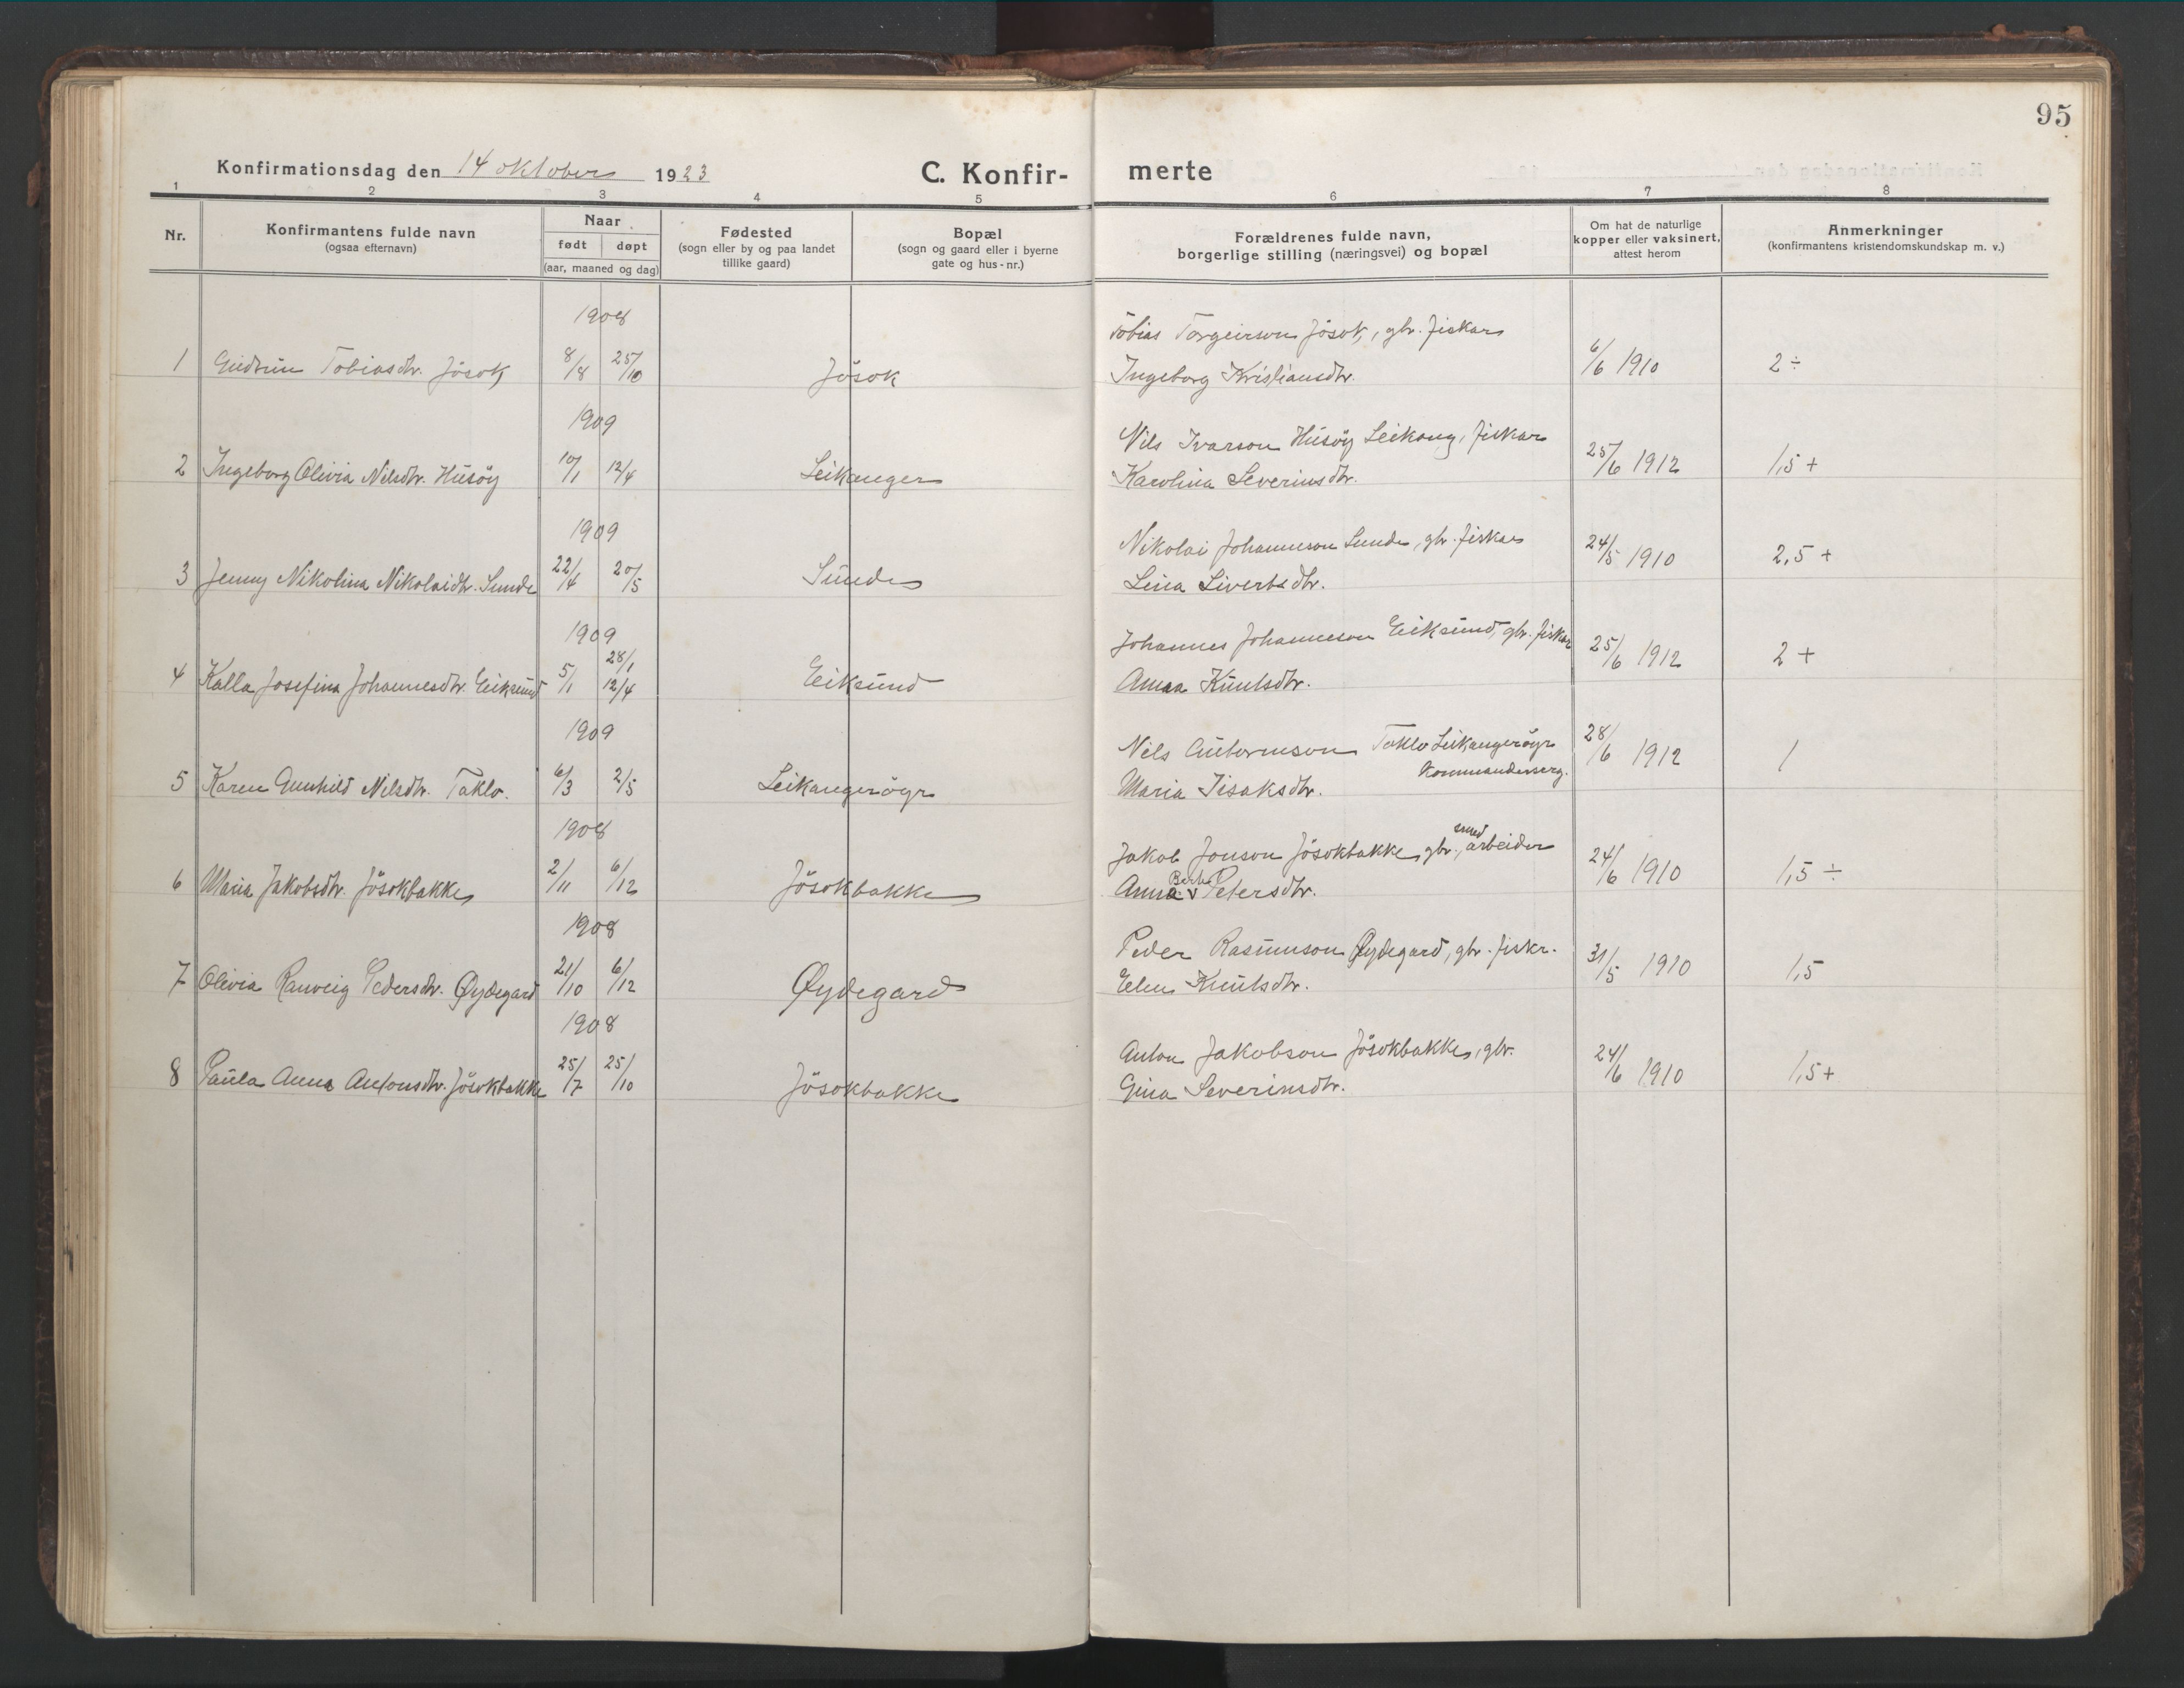 95
Konfirmationsdag den 14 oktober 1923
C. Konfir-
merte
1 2 3 4 5 6 7 8
Nr.
Konfirmantens fulde navn
(ogsaa efternavn)
Naar
født døpt
(aar, maaned og dag)
Fødested
(sogn eller by og paa landet
tillike gaard)
Bopæl
(sogn og gaard eller i byerne
gate og hus-nr.)
Forældrenes fulde navn,
borgerlige stilling (næringsvei) og bopæl
Om hat de naturlige
kopper eller vaksinert,
attest herom
Anmerkninger
(konfirmantens kristendomskundskap m. v.)
1908
Tobias Torgeirson Jøsok, gbr. fiskar
1 Gudrun Tobiasdtr. Jøsok 8/8 25/10 Jøsok Ingeborg Kristiansdtr. 6/6 1910 2 ÷
1909
Nils Ivarson Husøy Leikong, fiskar
2 Ingeborg Olivia Nilsdtr. Husøy 10/1 12/4 Leikanger Karolina Severinsdtr. 25/6 1912 1,5 +
1909
Nikolai Johanneson Sunde, gbr. fiskar
3 Jenny Nikolina Nikolaidtr. Sunde 22/4 20/5 Sunde Lina Sivertsdtr. 24/5 1910 2,5 +
1909
Johannes Johanneson Eiksund, gbr. fiskar
28/1
4 Kalla Josefina Johannesdtr. Eiksund 5/1 12/4 Eiksund Anna Knutsdtr. 25/6 1912 2 +
1909
Nils Guttormson Taklo Leikangerøyr
kommanderserg.
5 Karen Gunhild Nilsdtr. Taklo. 6/3 2/5 Leikangerøyr Maria Iisaksdtr. 28/6 1912 1
1908
smed
Jakob Jonson Jøsokbakke, gbr., arbeider
6 Maria Jakobsdtr. Jøsokbakke 2/11 6/12 Jøsokbakke Anna Petersdtr. 24/6 1910 1,5 ÷
1908
Peder Rasmuson Øydegard, gbr. fiskr.
7 Olivia Ranveig Pedersdtr. Øydegard 21/10 6/12 Øydegard Elen Knutsdtr. 31/5 1910 1,5
1908
Anton Jakobson Jøsokbakke, gbr.
8 Paula Anna Antonsdtr. Jøsokbakke 25/7 25/10 Jøsokbakke Gina Severinsdtr. 24/6 1910 1,5 +